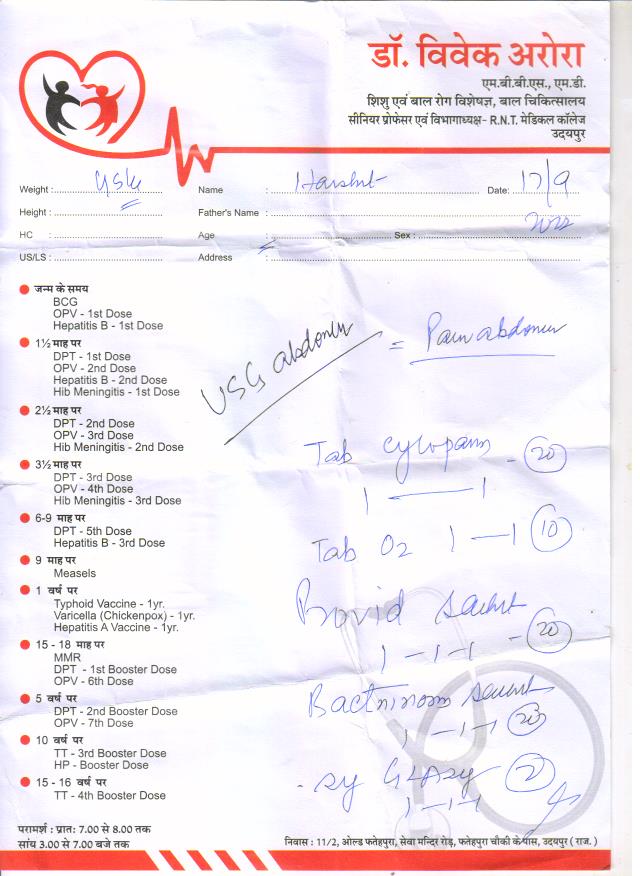 डॉ. विवेक अरोरा
एम.बी.बी.एस., एम.डी.
शिशु एवं बाल रोग विशेषज्ञ, बाल चिकित्सालय
सीनियर प्रोफेसर एवं विभागाध्यक्ष- R.N.T. मेडिकल कॉलेज
उदयपुर
Weight : Name : Harshit Date: 17/9
Height : Father's Name :
HC : Age : Sex :
US/LS : Address :
जन्म के समय
BCG
OPV - 1st Dose
Hepatitis B - 1st Dose
1½ माह पर
DPT - 1st Dose
OPV - 2nd Dose
Hepatitis B - 2nd Dose
Hib Meningitis - 1st Dose
2½ माह पर
DPT - 2nd Dose
OPV - 3rd Dose
Hib Meningitis - 2nd Dose
3½ माह पर
DPT - 3rd Dose
OPV - 4th Dose
Hib Meningitis - 3rd Dose
6-9 माह पर
DPT - 5th Dose
Hepatitis B - 3rd Dose
9 माह पर
Measels
1 वर्ष पर
Typhoid Vaccine - 1yr.
Varicella (Chickenpox) - 1yr.
Hepatitis A Vaccine - 1yr.
15 - 18 माह पर
MMR
DPT - 1st Booster Dose
OPV - 6th Dose
5 वर्ष पर
DPT - 2nd Booster Dose
OPV - 7th Dose
10 वर्ष पर
TT - 3rd Booster Dose
HP - Booster Dose
15 - 16 वर्ष पर
TT - 4th Booster Dose
USG abdomen = Pain abdomen
Tab - 20
1 — 1
Tab O2 1 — 1 10
sachet
1 - 1 - 1 - 20
sachet
1 - 1 - 1 20
Sy 2
1 - 1 - 1
परामर्श : प्रातः 7.00 से 8.00 तक
सांय 3.00 से 7.00 बजे तक
निवास : 11/2, ओल्ड फतेहपुरा, सेवा मन्दिर रोड़, फतेहपुरा चौकी के पास, उदयपुर ( राज. )